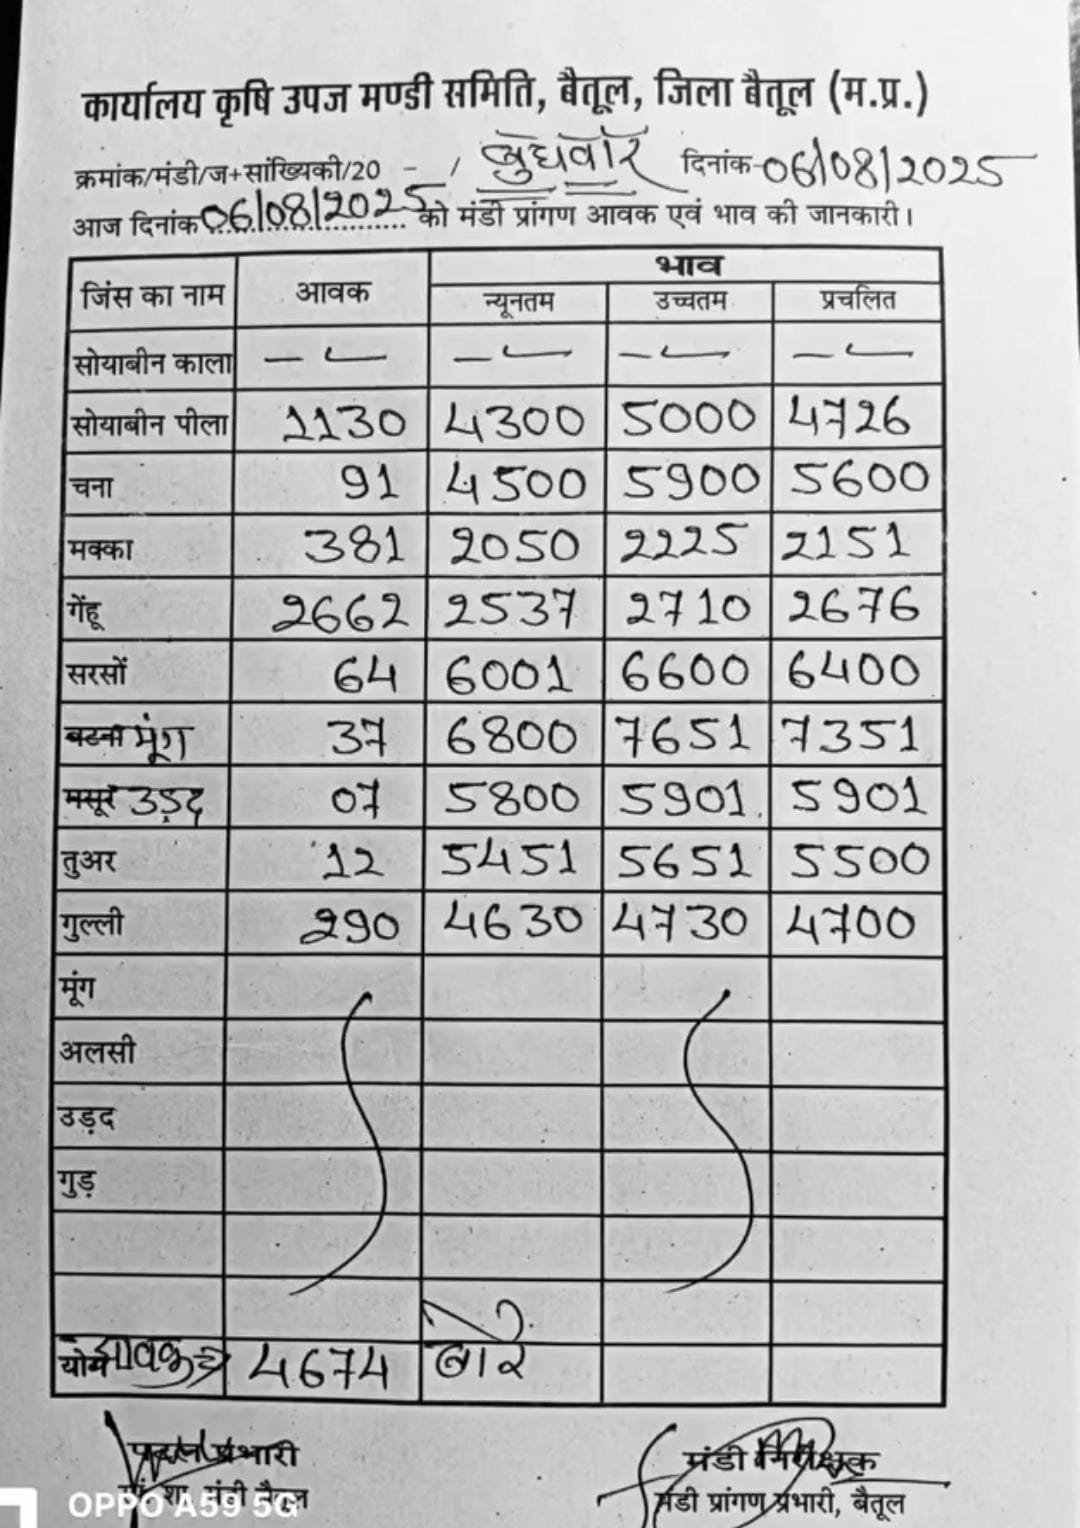 कार्यालय कृषि उपज मण्डी समिति, बैतूल, जिला बैतूल (म.प्र.)
क्रमांक/मंडी/ज+सांख्यिकी/20 - / बुधवार दिनांक-06/08/2025
आज दिनांक 06/08/2025 को मंडी प्रांगण आवक एवं भाव की जानकारी।
जिंस का नाम आवक भाव
न्यूनतम उच्चतम प्रचलित
सोयाबीन काला — — — —
सोयाबीन पीला 1130 4300 5000 4726
चना 91 4500 5900 5600
मक्का 381 2050 2225 2151
गेंहू 2662 2537 2710 2676
सरसों 64 6001 6600 6400
बटना मूंग 37 6800 7651 7351
मसूर उड़द 07 5800 5901 5901
तुअर 12 5451 5651 5500
गुल्ली 290 4630 4730 4700
मूंग
अलसी
उड़द
गुड़
योग आवक 4674 बोरे
प्रभारी मंडी
मंडी बैतूल मंडी प्रांगण प्रभारी, बैतूल
OPPO A59 5G